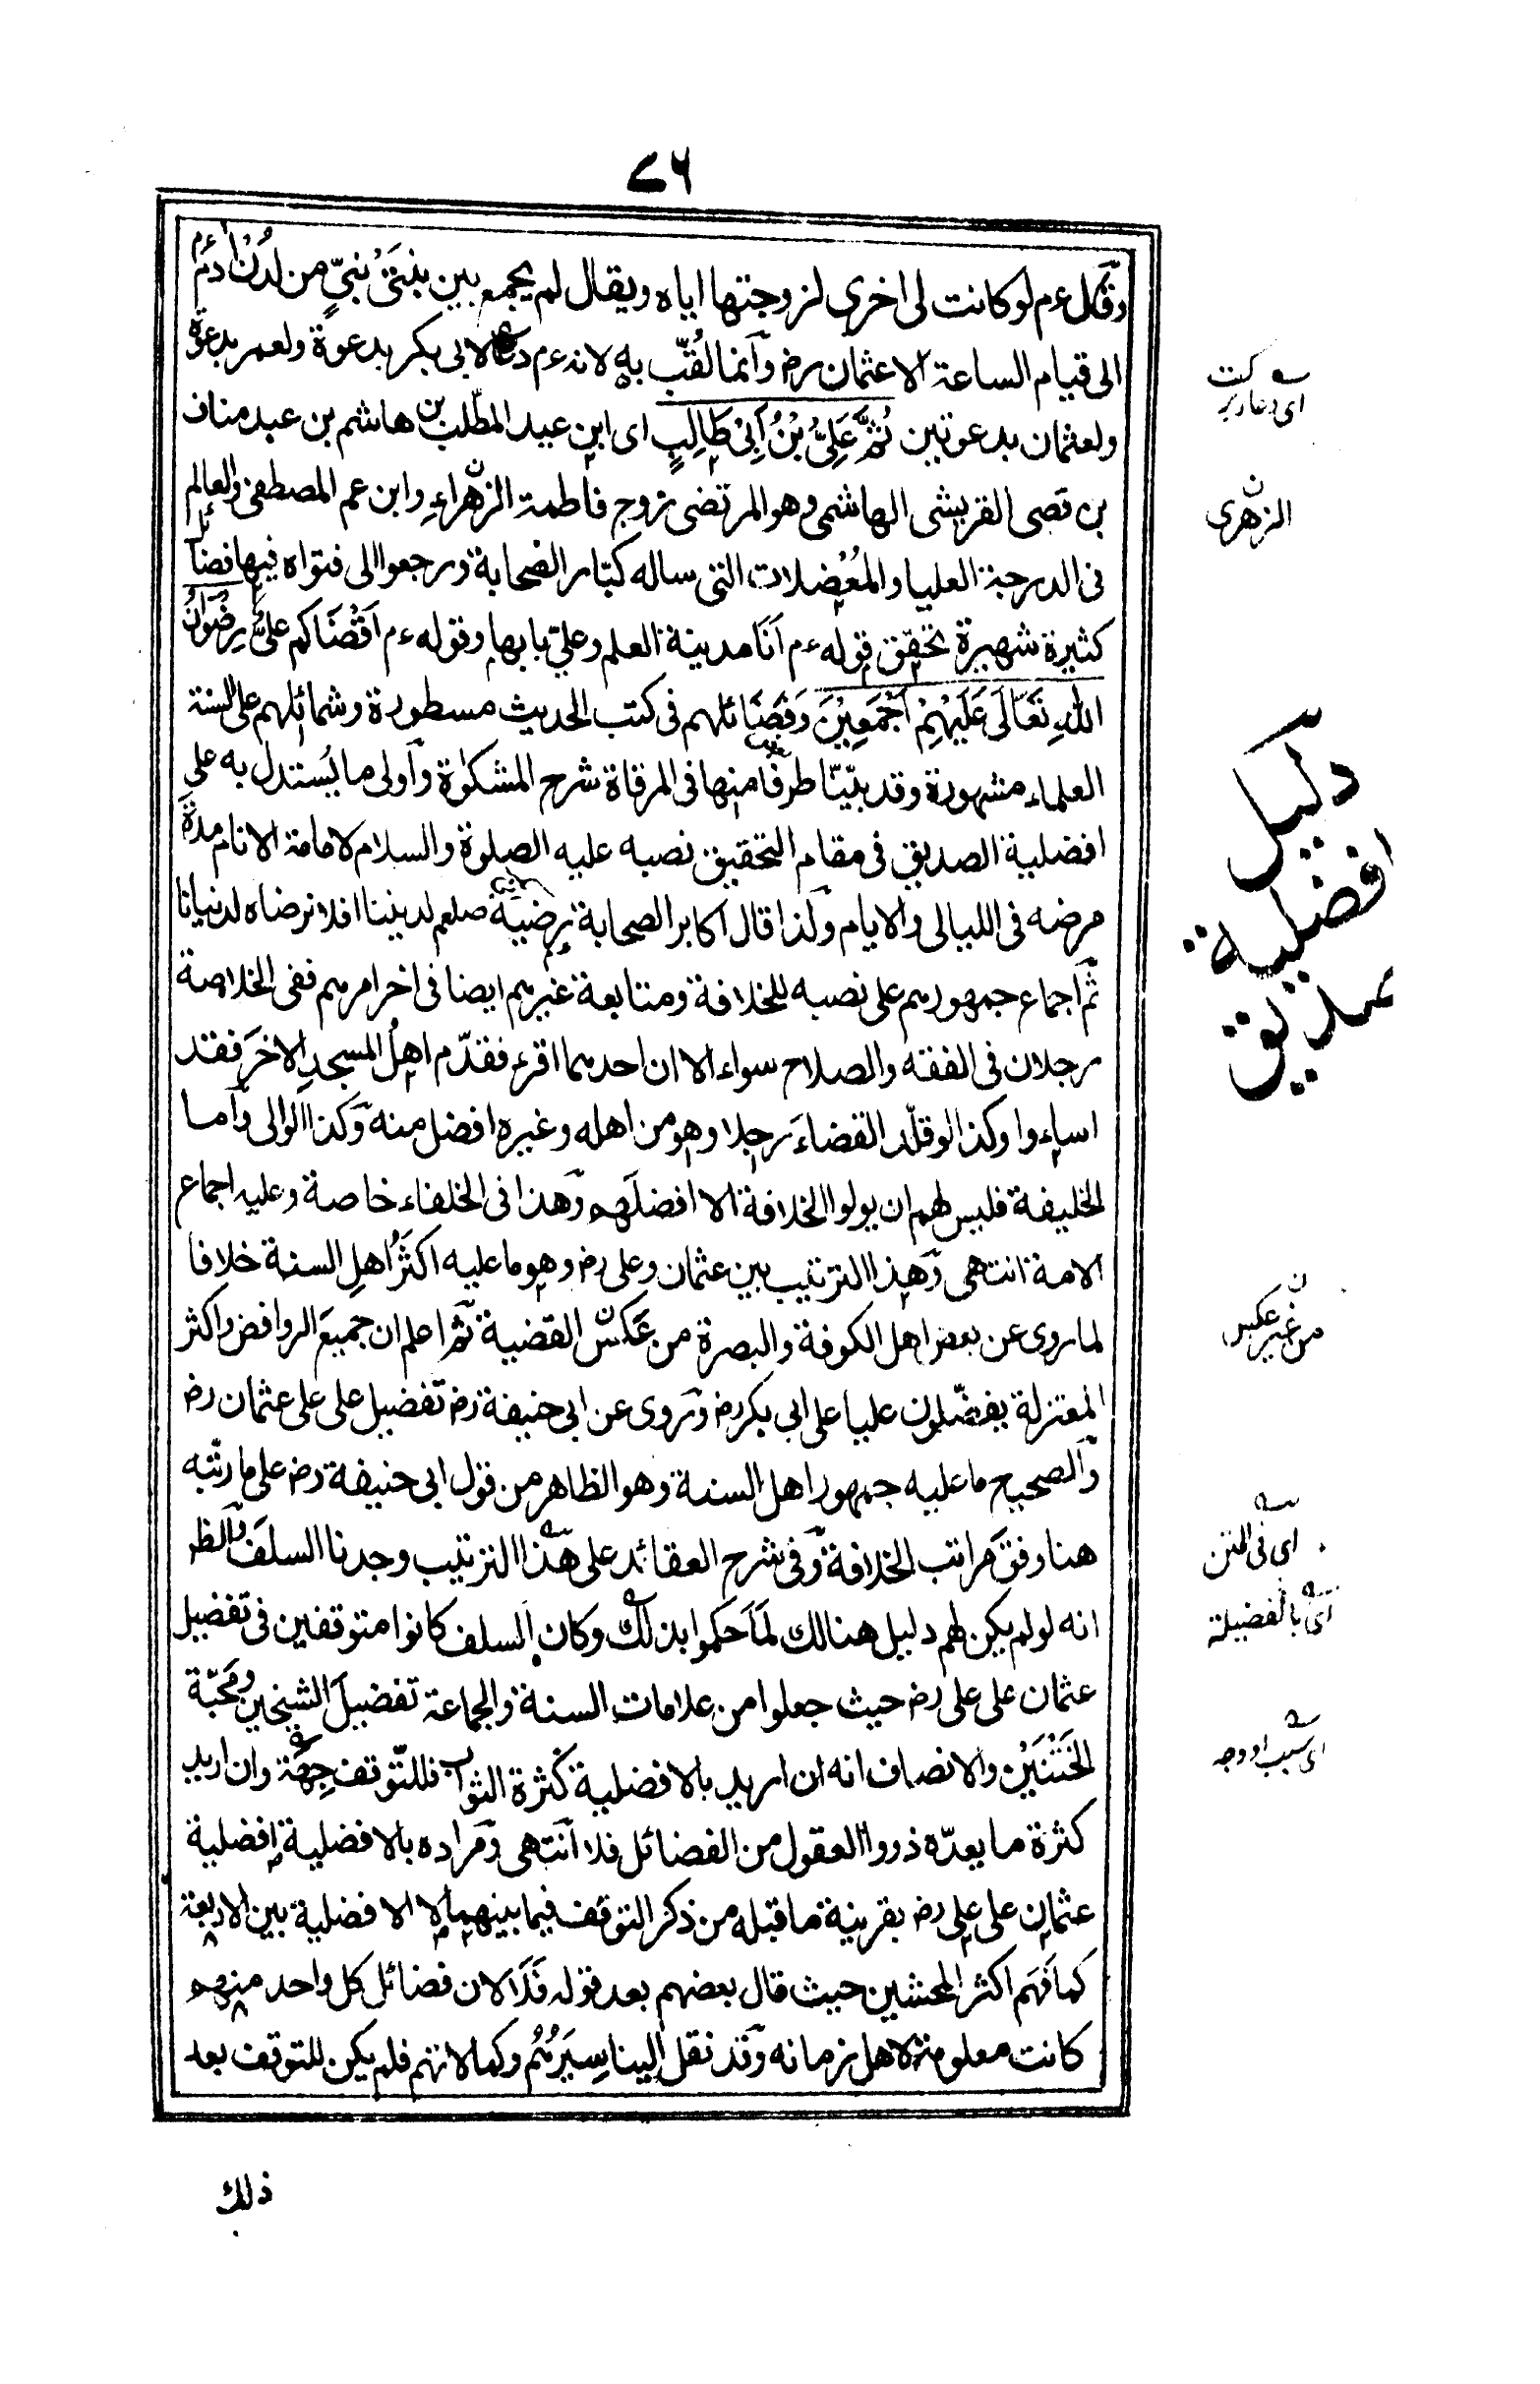 ٧٦
وقال ءم لو كانت لى اخرى لزوجتها اياه ويقال لم يجمع بين بنتَىْ نبىٍّ من لدُنْ ادم ءم
الى قيام الساعة الا عثمان رض وانما لُقّب به لانه ءم دعا لابى بكر بدعوة ولعمر بدعوة
ولعثمان بدعوتين ثُمَّ عَلِىُّ بْنُ اَبِىْ طَالِبٍ اى ابن عبد المطّلب بن هاشم بن عبد مناف
بن قصى القريشى الهاشمى وهو المرتضى زوج فاطمة الزهراءِ وابن عم المصطفى والعالم
فى الدرجة العليا والمُعْضِلات التى ساله كبّار الصحابة ورجعوا الى فتواه فيها فضائل
كثيرة شهيرة تحقق قوله ءم اَنَا مدينة العلم وعلىّ بابها وقوله ءم اَقْضَاكم علىٌّ رِضْوَانُ
اللهِ تَعَالٰى عَلَيْهِمْ اَجْمَعِيْنَ وَفَضَائلهم فى كتب الحديث مسطورة وشمائلهم على السنة
العلماء مشهورة وقد بيّنّا طرفا منها فى المرقاة شرح المشكوٰة واولى ما يُستدل به على
افضلية الصديق فى مقام التحقيق نصبه عليه الصلوة والسلام لامامة الانام مدةَ
مرضه فى الليالى والايام ولذا قال اكابر الصحابة رضيه صلعم لديننا افلا نرضاه لدنيانا
ثم اجماع جمهورهم على نصبه للخلافة ومتابعة غيرهم ايضا فى اخر امرهم ففى الخلاصة
رجلان فى الفقه والصلاح سواء الا ان احدهما اقرء فقدّم اهلُ المسجدِ الاخرَ فقد
اساءوا وكذا لو قلّد القضاءَ رجلا وهو من اهله وغيره افضل منه وكذا الوالى واما
الخليفة فليس لهم ان يولوا الخلافة الا افضلَهم وهذا فى الخلفاء خاصة وعليه اجماع
الامة انتهى وهذا الترتيب بين عثمان وعلى رض وهو ما عليه اكثَرُ اهلِ السنة خلافا
لما روى عن بعض اهل الكوفة والبصرة من عَكسِ القضية ثم اعلم ان جميعَ الروافض واكثر
المعتزلة يفضّلون عليا على ابى بكر رض وروى عن ابى حنيفة رض تفضيل على على عثمان رض
والصحيح ما عليه جمهور اهل السنة وهو الظاهر من قول ابى حنيفة رض على ما رتّبه
هنا وفقَ مراتب الخلافة وفى شرح العقائد على هذا الترتيب وجدنا السلفَ والظ
انه لو لم يكن لهم دليل هنالك لَمَا حَكموا بذلك وكان السلف كانوا متوقفين فى تفضيل
عثمان على على رض حيث جعلوا من علامات السنة والجماعة تفضيلَ الشيخين ومَحبّة
الخَتَنَيْن والانصاف انه ان اريد بالافضلية كثرة الثواب فللتّوقف جِهة وان اريد
كثرة ما يعدّه ذووا العقول من الفضائل فلا انتهى ومراده بالافضلية افضلية
عثمان على على رض بقرينة ما قبله من ذكر التوقف فيما بينهما لا الافضلية بين الاربعة
كما فَهِم اكثر المحشين حيث قال بعضهم بعد قوله فَلَا لان فضائل كل واحد منهم
كانت معلومة لاهل زمانه وقد نقل الينا سِيَرُهُم وكمالاتهم فلم يكن للتوقف بعد
ذلك
اى دعا
الزهرى ن
دليل
افضلية
صديق
ن
من غير عكس
اى فى المتن
اى بالفضيلة
اى سبب او وجه